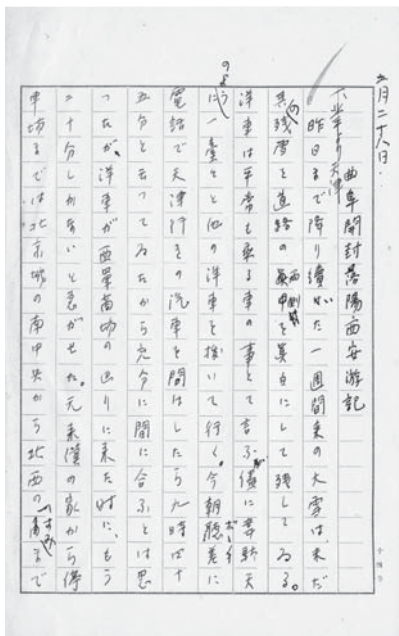 五月二十八日.
曲阜開封洛陽西安游記
北平より天津
昨日まで降り續いだ一週間来の大雪は、未だ
其の残雪を道路の両側を真白にして残してゐる。
洋車は平常も乗る車の事とて言ふが儘に
のように一臺と他の洋車を抜いて行く。今朝聴差に
ボーイ
電話で天津行きの汽車を問はしたら九時四十
五分と云つてゐたから充分に間に合ふとは思
つたが、洋車が西單菌坊の辺りに来た時に、もう
二十分しかないと急がせた。元来僕の家から停
車場までは北京城の南中央から北西の
すみ
まで
十四字